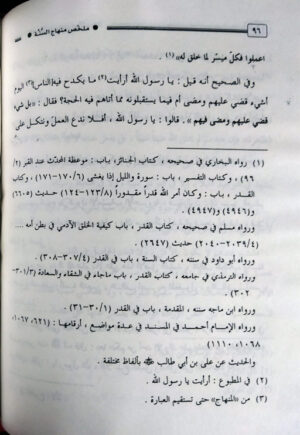 ٩٦
ملخص منهاج السنة
اعملوا فكلٌ ميسّر لما خلق له» (١) .
وفي الصحيح أنه قيل : يا رسول الله أرأيت(٢) ما يكدح فيه[الناس](٣) اليوم
أشيء قضي عليهم ومضى أم فيما يستقبلونه مما أتاهم فيه الحجة؟ فقال: «بل شيء
قضي عليهم ومضى فيهم» . قالوا: يا رسول الله ، أفلا ندع العمل ونتكل على
(١) رواه البخاري في صحيحه ، كتاب الجنائز، باب : موعظة المحدّث عند القبر (٢/
٩٦) ، وكتاب التفسير ، باب : سورة والليل إذا يغشى (١٧٠/٦-١٧١) ، وكتاب
القدر ، باب : وكان أمر الله قدراً مقدوراً (١٢٣/٨-١٢٤) حديث (٦٦٠٥)
و(٤٩٤٦) و(٤٩٤٧).
ورواه مسلم في صحيحه ، كتاب القدر ، باب كيفية الخلق الآدمي في بطن أمه ....
(٢٠٣٩/٤-٢٠٤٠) حديث (٢٦٤٧) .
ورواه أبو داود في سننه ، كتاب السنة ، باب في القدر (٣٠٧/٤-٣٠٨) .
ورواه الترمذي في جامعه ، كتاب القدر ، باب ماجاء في الشقاء والسعادة (٣٠١/٣-
٣٠٢) .
ورواه ابن ماجه سننه ، المقدمة ، باب في القدر (٣٠/١-٣١) .
ورواه الإمام أحمد في المسند في عدة مواضع ، أرقامها : (٦٢١، ١٠٦٧،
١٠٦٨، ١١١٠)
والحديث عن علي بن أبي طالب ﷺ بألفاظ مختلفة .
(٢) في المطبوع : أرأيت يا رسول الله .
(٣) من «المنهاج» حتى تستقيم العبارة .